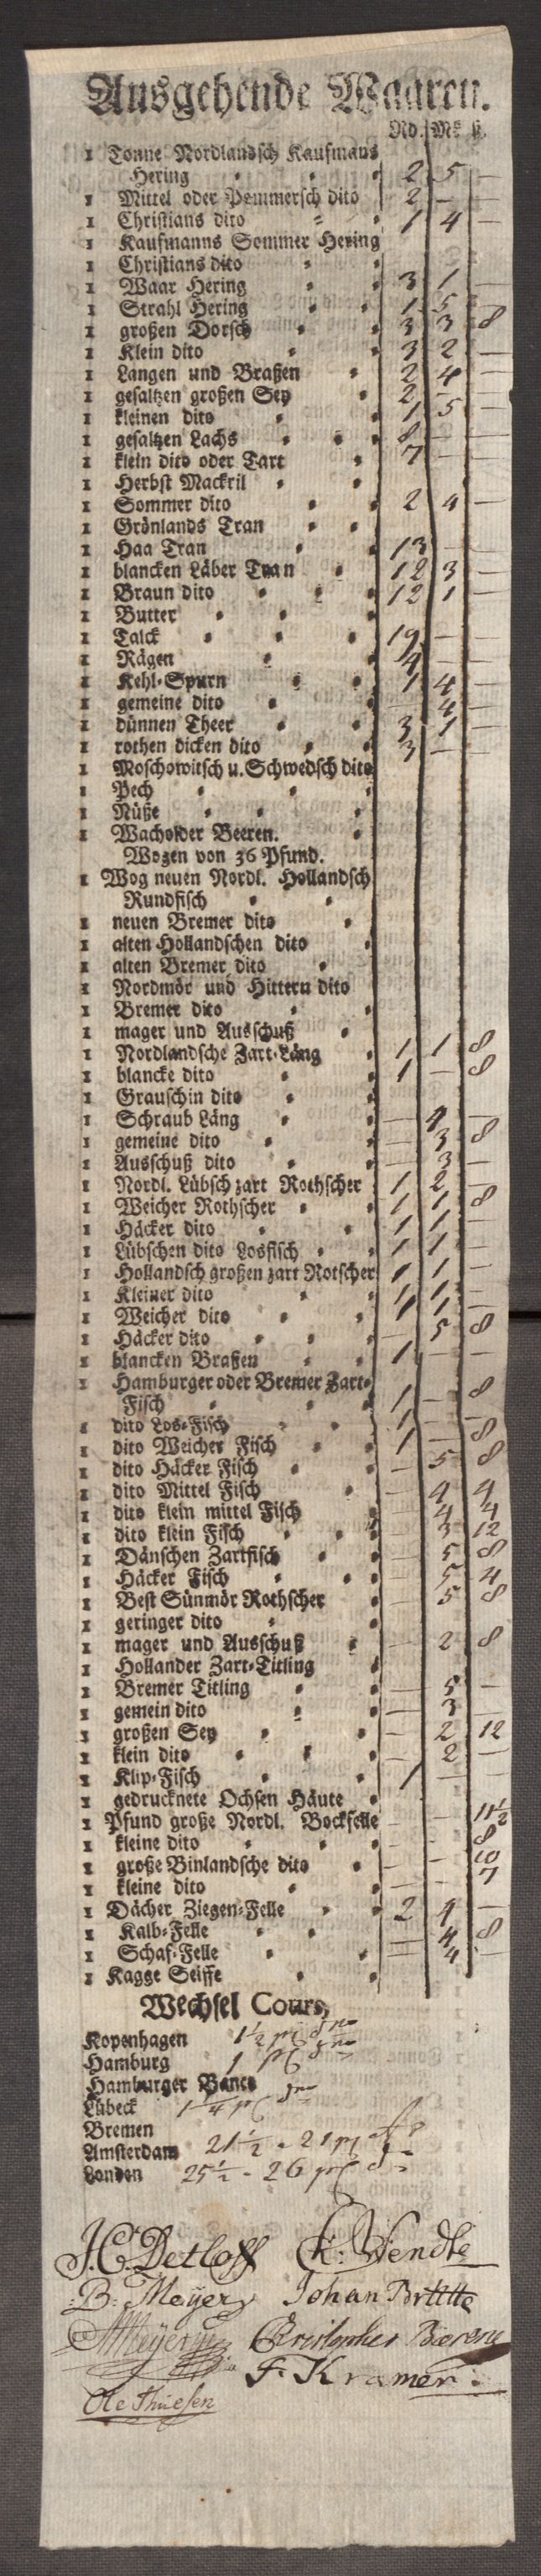 Ausgehende Waaren.
Rd. Mk ß.
1 Tonne Nordlandsch Kaufmans
Hering 2 5 —
1 Mittel oder Pommersch dito 2 — —
1 Christians dito 1 4 —
1 Kaufmanns Sommer Hering
1 Christians dito
1 Waar Hering 3 1 —
1 Strahl Hering 1 5 —
1 großen Dorsch 3 3 8
1 Klein dito 3 2 —
1 Langen und Braßen 2 4 —
1 gesaltzen großen Sey 2 — —
1 kleinen dito 1 5 —
1 gesaltzen Lachs 8 — —
1 klein dito oder Tart 7 — —
1 Herbst Mackril
1 Sommer dito 2 4 —
1 Grönlands Tran
1 Haa Tran 13 — —
1 blancken Läber Tran 12 3 —
1 Braun dito 12 1 —
1 Butter
1 Talck 19 — —
1 Rägen 4 — —
1 Kehl-Spurn 1 4 —
1 gemeine dito — 4 —
1 dünnen Theer 3 1 —
1 rothen dicken dito 3 — —
1 Moschowitsch u. Schwedsch dito
1 Pech
1 Nüße
1 Wacholder Beeren.
Wogen von 36 Pfund.
1 Wog neuen Nordl. Hollandsch
Rundfisch
1 neuen Bremer dito
1 alten Hollandschen dito
1 alten Bremer dito
1 Nordmör und Hittern dito
1 Bremer dito
1 mager und Ausschuß
1 Nordlandsche Zart-Läng 1 1 8
1 blancke dito 1 — 8
1 Grauschin dito
1 Schraub Läng — 4 —
1 gemeine dito — 3 8
1 Ausschuß dito — 3 —
1 Nordl. Lübsch zart Rothscher 1 2 —
1 Weicher Rothscher 1 1 8
1 Häcker dito 1 1 —
1 Lübschen dito Losfisch 1 1 —
1 Hollandsch großen zart Rotscher 1 1 —
1 Kleiner dito 1 1 —
1 Weicher dito 1 1 —
1 Häcker dito — 5 8
1 blancken Braßen 1 — —
1 Hamburger oder Bremer Zart-
Fisch 1 — 8
1 dito Los-Fisch 1 — —
1 dito Weicher Fisch 1 — 8
1 dito Häcker Fisch — 5 8
1 dito Mittel Fisch — 4 4
1 dito klein mittel Fisch — 4 4
1 dito klein Fisch — 3 12
1 Dänschen Zartfisch — 5 8
1 Häcker Fisch — 5 4
1 Best Sünmör Rothscher — 5 8
1 geringer dito
1 mager und Ausschuß — 2 8
1 Hollander Zart-Titling
1 Bremer Titling — 5 —
1 gemein dito — 3 —
1 großen Sey — 2 12
1 klein dito — 2 —
1 Klip-Fisch 1 — —
1 gedrucknete Ochsen Häute
1 Pfund große Nordl. Bockfelle — — 11½
1 kleine dito — — 8
1 große Binlandsche dito — — 10
1 kleine dito — — 7
1 Dächer Ziegen-Felle 2 4 —
1 Kalb-Felle — 4 8
1 Schaf-Felle — 4
1 Kagge Seiffe
Wechsel Cours,
Kopenhagen 1½
Hamburg 1
Hamburger Banco
Lübeck 1¼
Bremen
Amsterdam 21½ - 21
London 25½ - 26
J. C. Detloff K. Wendte
B. Meyer Johan
Meyer Christopher
F. Kramer
Ole Thuesen